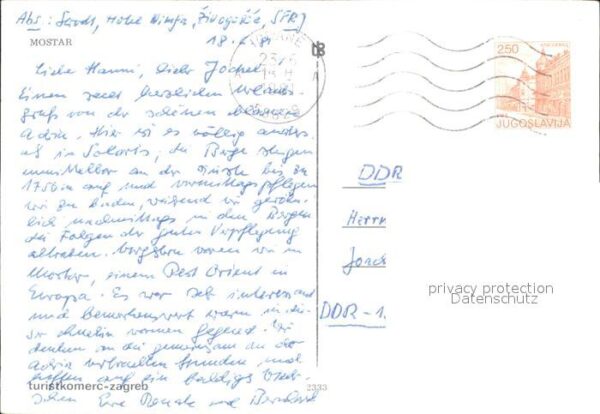 Abs.: Hotel Nimfa, Živogošće, SFRJ
MOSTAR
Liebe Hanni, lieber Jochel
Einen recht herzlichen Urlaubs-
gruß von der schönen blauen
Adria. Hier ist es völlig anders
als in Solaris, die Berge steigen
unmittelbar an der Küste bis zu
1756 m auf und vormittags pflegen
wir zu baden, während wir
nachmittags in den Bergen
die Folgen der guten Verpflegung
abtraben. Vorgestern waren wir in
Mostar, einem Rest Orient in
Europa. Es war sehr interessant
und bemerkenswert warm in
Gegend. Wir
denken an die gemeinsam an der
Adria verbrachten Stunden und
hoffen auf ein baldiges Wieder-
sehen Eure Renate und Bernhard
turistkomerc-zagreb
2333
2.50
JUGOSLAVIJA
DDR
Herrn
DDR-1
privacy protection
Datenschutz